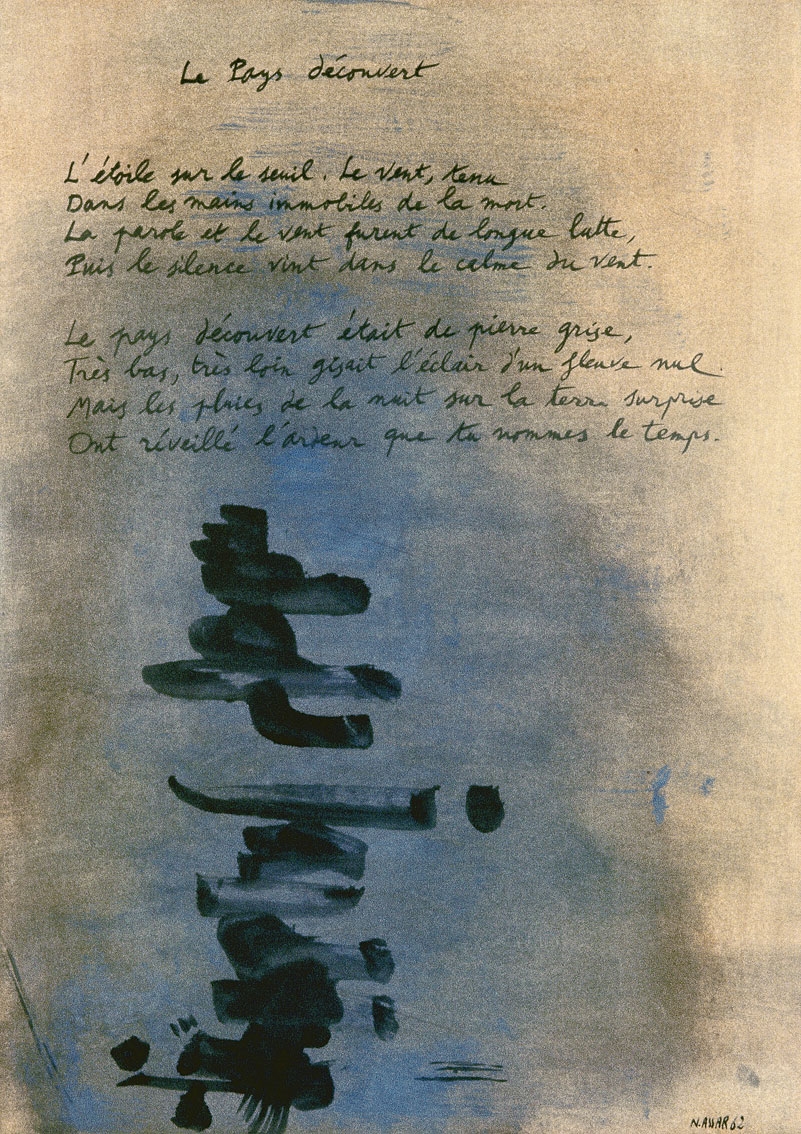 Le Pays découvert
L'étoile sur le seuil. Le vent, tenu
Dans les mains immobiles de la mort.
La parole et le vent furent de longue lutte,
Puis le silence vint dans le calme du vent.
Le pays découvert était de pierre grise,
Très bas, très loin gisait l'éclair d'un fleuve nul.
Mais les pluies de la nuit sur la terre surprise
Ont réveillé l'ardeur que tu nommes le temps.
N. ASSAR 62